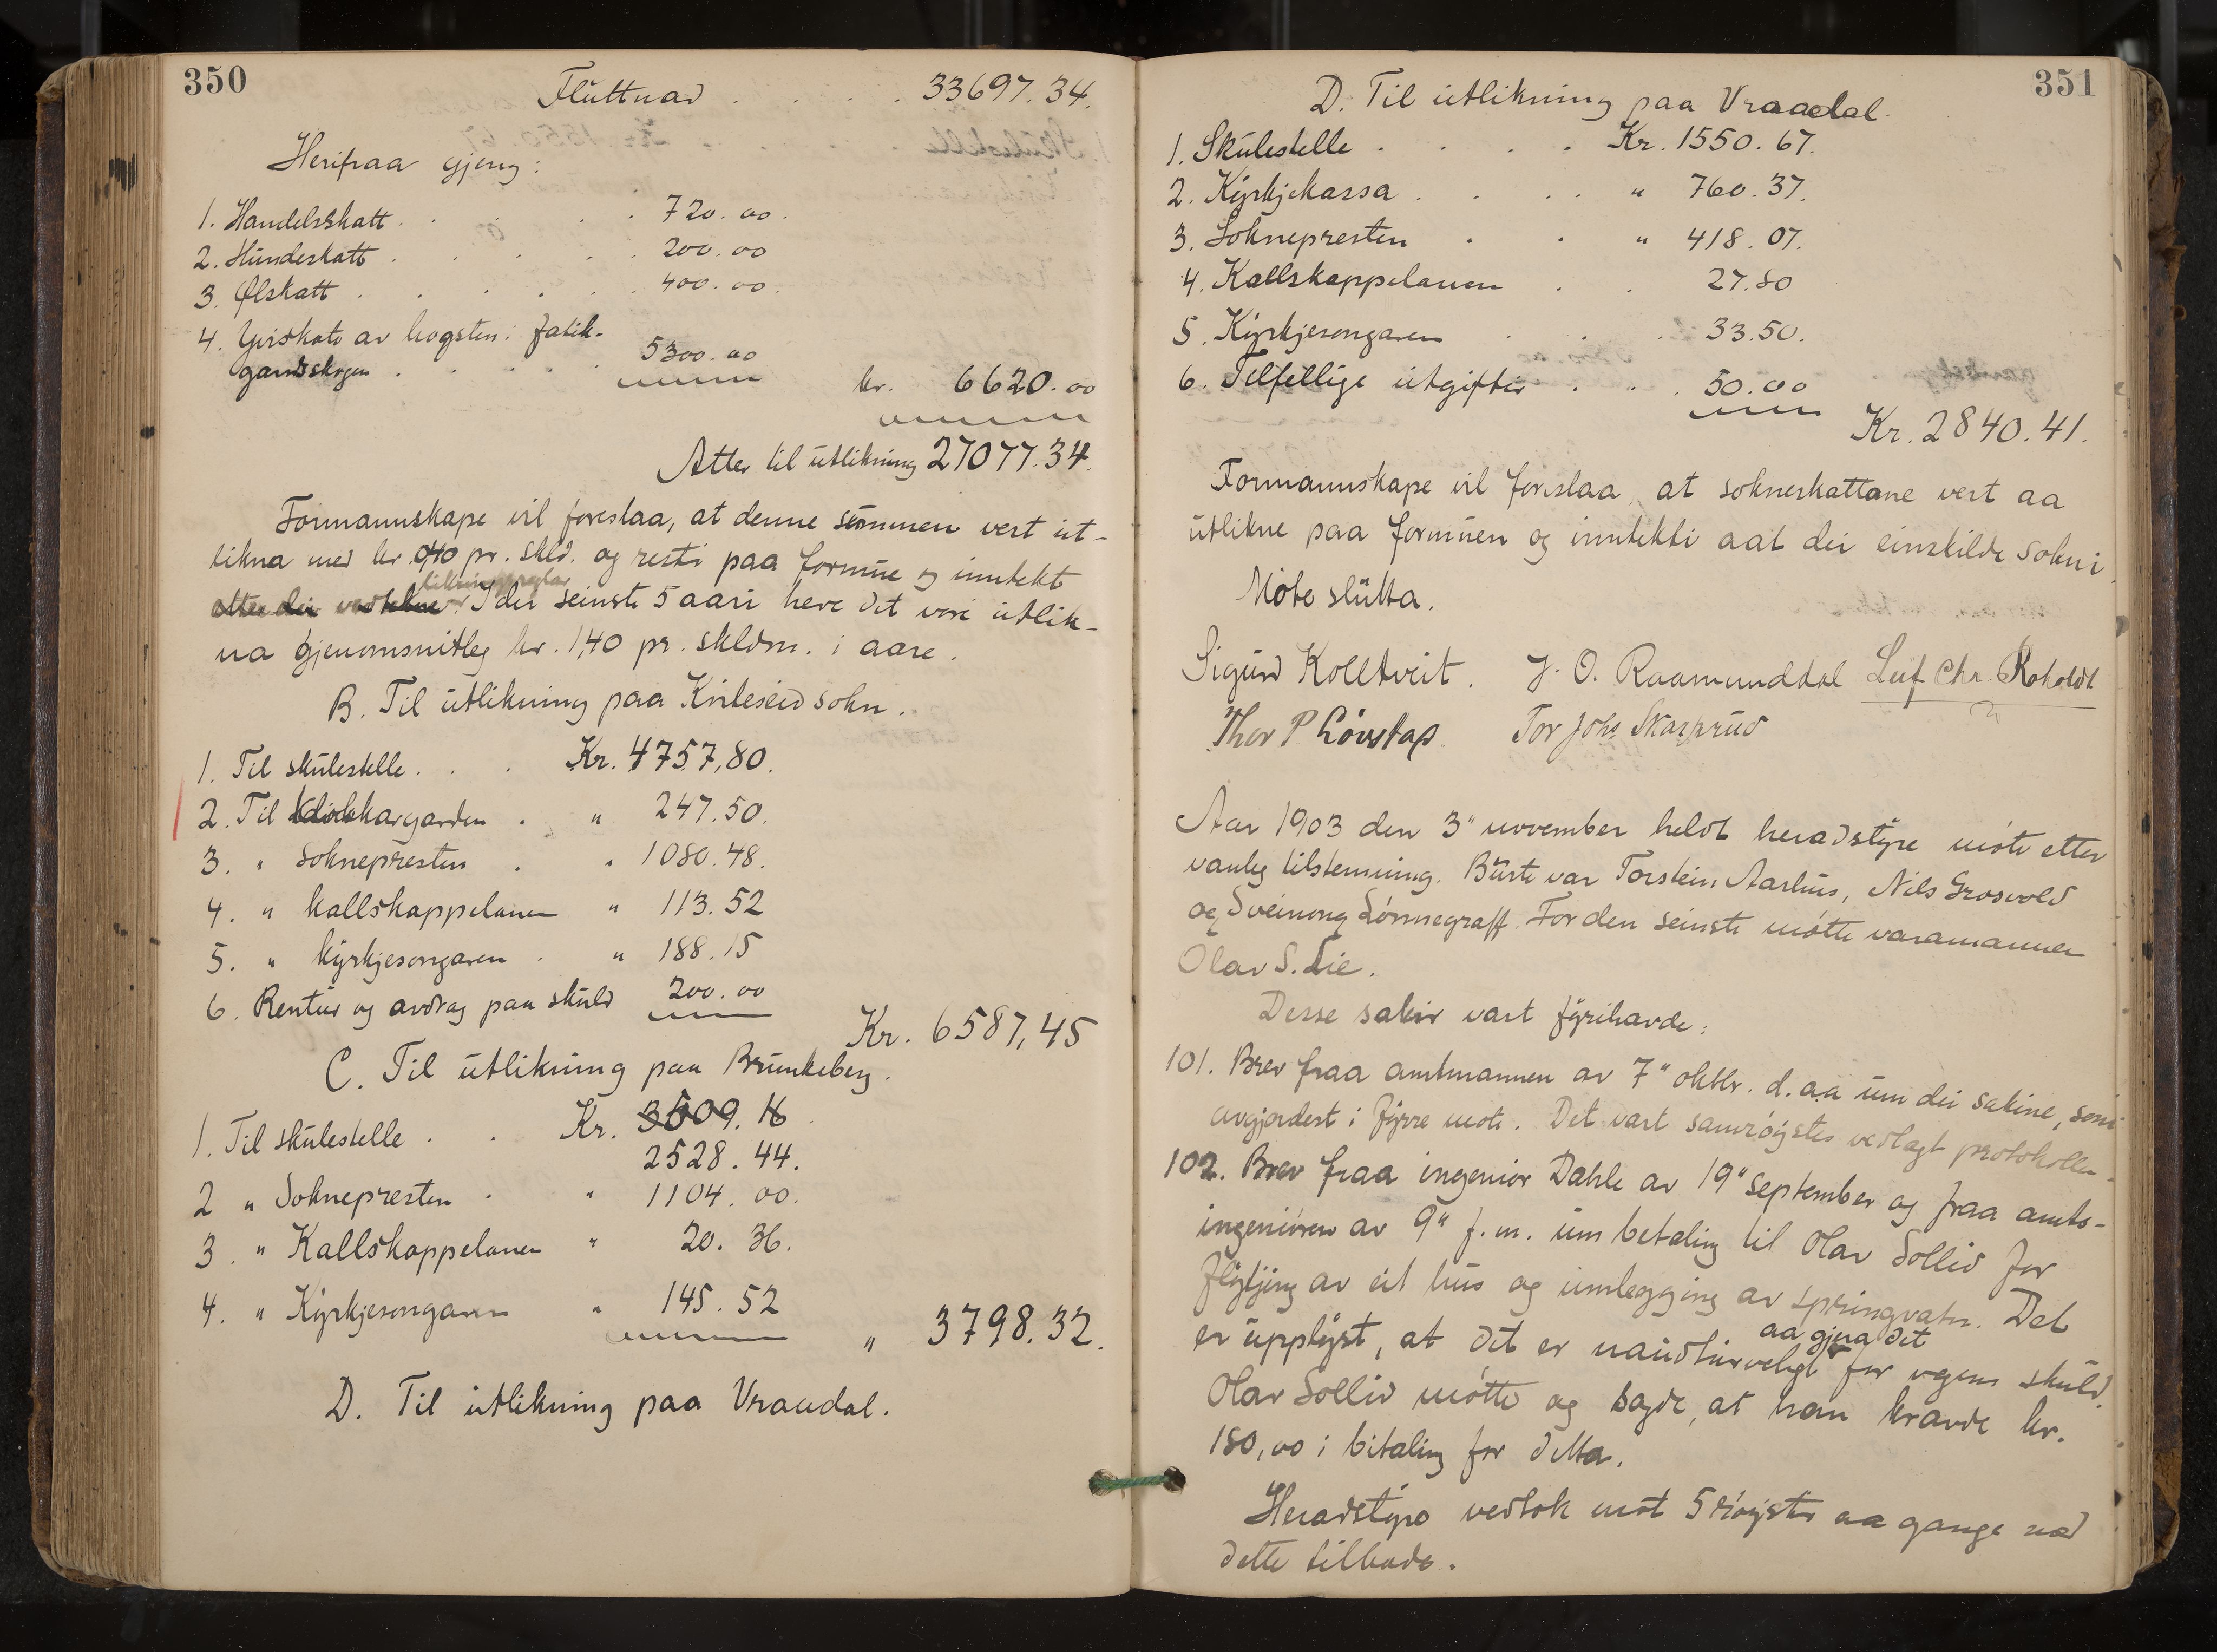 350
Fluttnad . . . . 33697.34.
Herifraa gjeng:
1. Handelsskatt . . . . 720.00.
2. Hundeskatt . . . . . 200.00
3. Ølskatt . . . . . 400.00.
4. Yvirskatt av hogsten i fatik-
gardsskogen . . . . 5300.00
kr. 6620.00
Atter til utlikning 27077.34.
Formannskape vil foreslaa, at denne summen vert ut-
likna med kr. 0,40 pr. skld. og resti paa formue og inntekt
etter dei . I dei seinste 5 aari heve det vori utlik-
na gjenomsnitleg kr. 1,40 pr. skldm. i aare.
B. Til utlikning paa Kviteseid sokn.
1. Til skulestelle . . . Kr. 4757,80.
2. Til klokkargarden . " 247.50.
3. " Soknepresten . " 1080.48.
4. " kallskappelanen " 113.52
5. " kyrkjesongaren . " 188.15
6. Rentur og avdrag paa skuld 200.00
Kr. 6587,45
C. Til utlikning paa Brunkeberg.
1. Til skulestelle . . Kr. 3509.16
2528.44.
2 " Soknepresten . " 1104.00.
3. " Kallskappelanen " 20.36.
4. " Kyrkjesongaren " 145.52
" 3798.32.
D. Til utlikning paa Vraadal.
351
D. Til utlikning paa Vraadal.
1. Skulestelle . . . . Kr. 1550.67.
2. Kyrkjekassa . . . . " 760.37.
3. Soknepresten . . " 418.07.
4. Kallskappelanen . . 27.80
5. Kyrkjesongaren . . . 33.50.
6. Tilfellige utgifter . . . 50.00
Kr. 2840.41.
Formannskape vil foreslaa at sokneskattane vert aa
utlikne paa formuen og inntekti aat dei einskilde sokni.
Møte slutta.
Sigurd Kolltveit. J. O. Raamunddal Leif Chr. Roholdt
Thor P Løvstap. Tor Johs Skarprud
Aar 1903 den 3" november heldt heradstyre møte etter
vanleg tilstemning. Burte var Torstein Aarhus, Nils Grosvold
og Sveinung Lønnegraff. For den seinste møtte varamannen
Olav S. Lie.
Desse sakir vart fyrihavde:
101. Brev fraa amtmannen av 7" oktbr. d.aa um dei sakine, som
avgjordest i fyrre møte. Det vart samrøystes vedlagt protokollen.
102. Brev fraa ingeniør Dahle av 19" september og fraa amts-
ingeniøren av 9" f.m. um betaling til Olav Sollid for
flytjing av eit hus og umlegging av springvatn. Det
er upplyst, at det er naudturvelegt aa gjera det for vegens skuld.
Olav Sollid møtte og sagde, at han kravde kr.
180,00 i bitaling for detta.
Heradstyre vedtok mot 5 røyster aa gange med
dette tilbode.